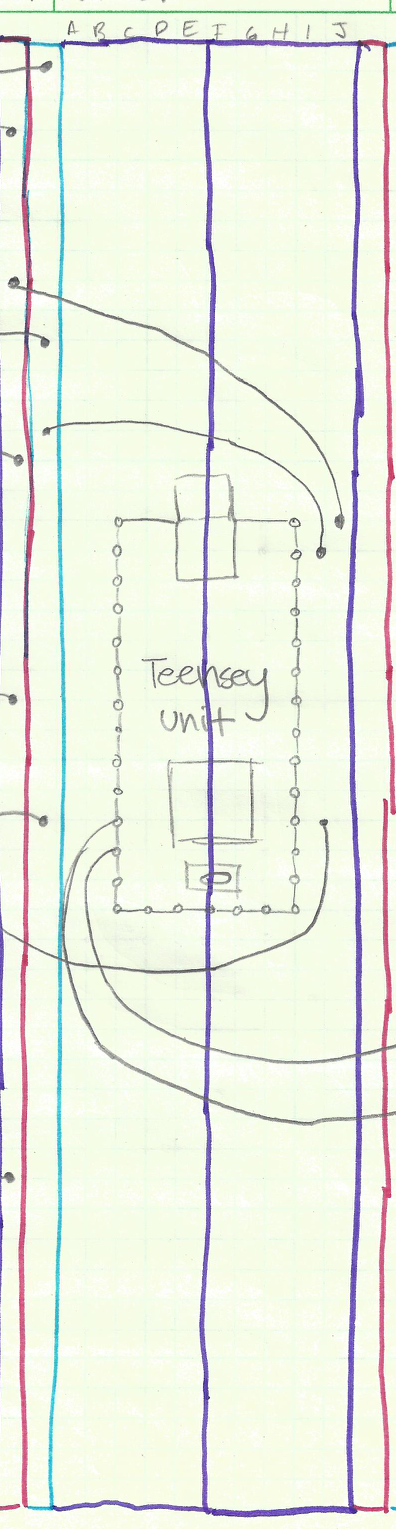 A B C D E F G H I J
Teensey
unit